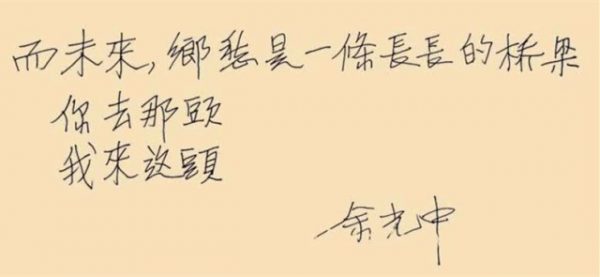 而未來,鄉愁是一條長長的橋梁
你去那頭
我來这頭
余光中